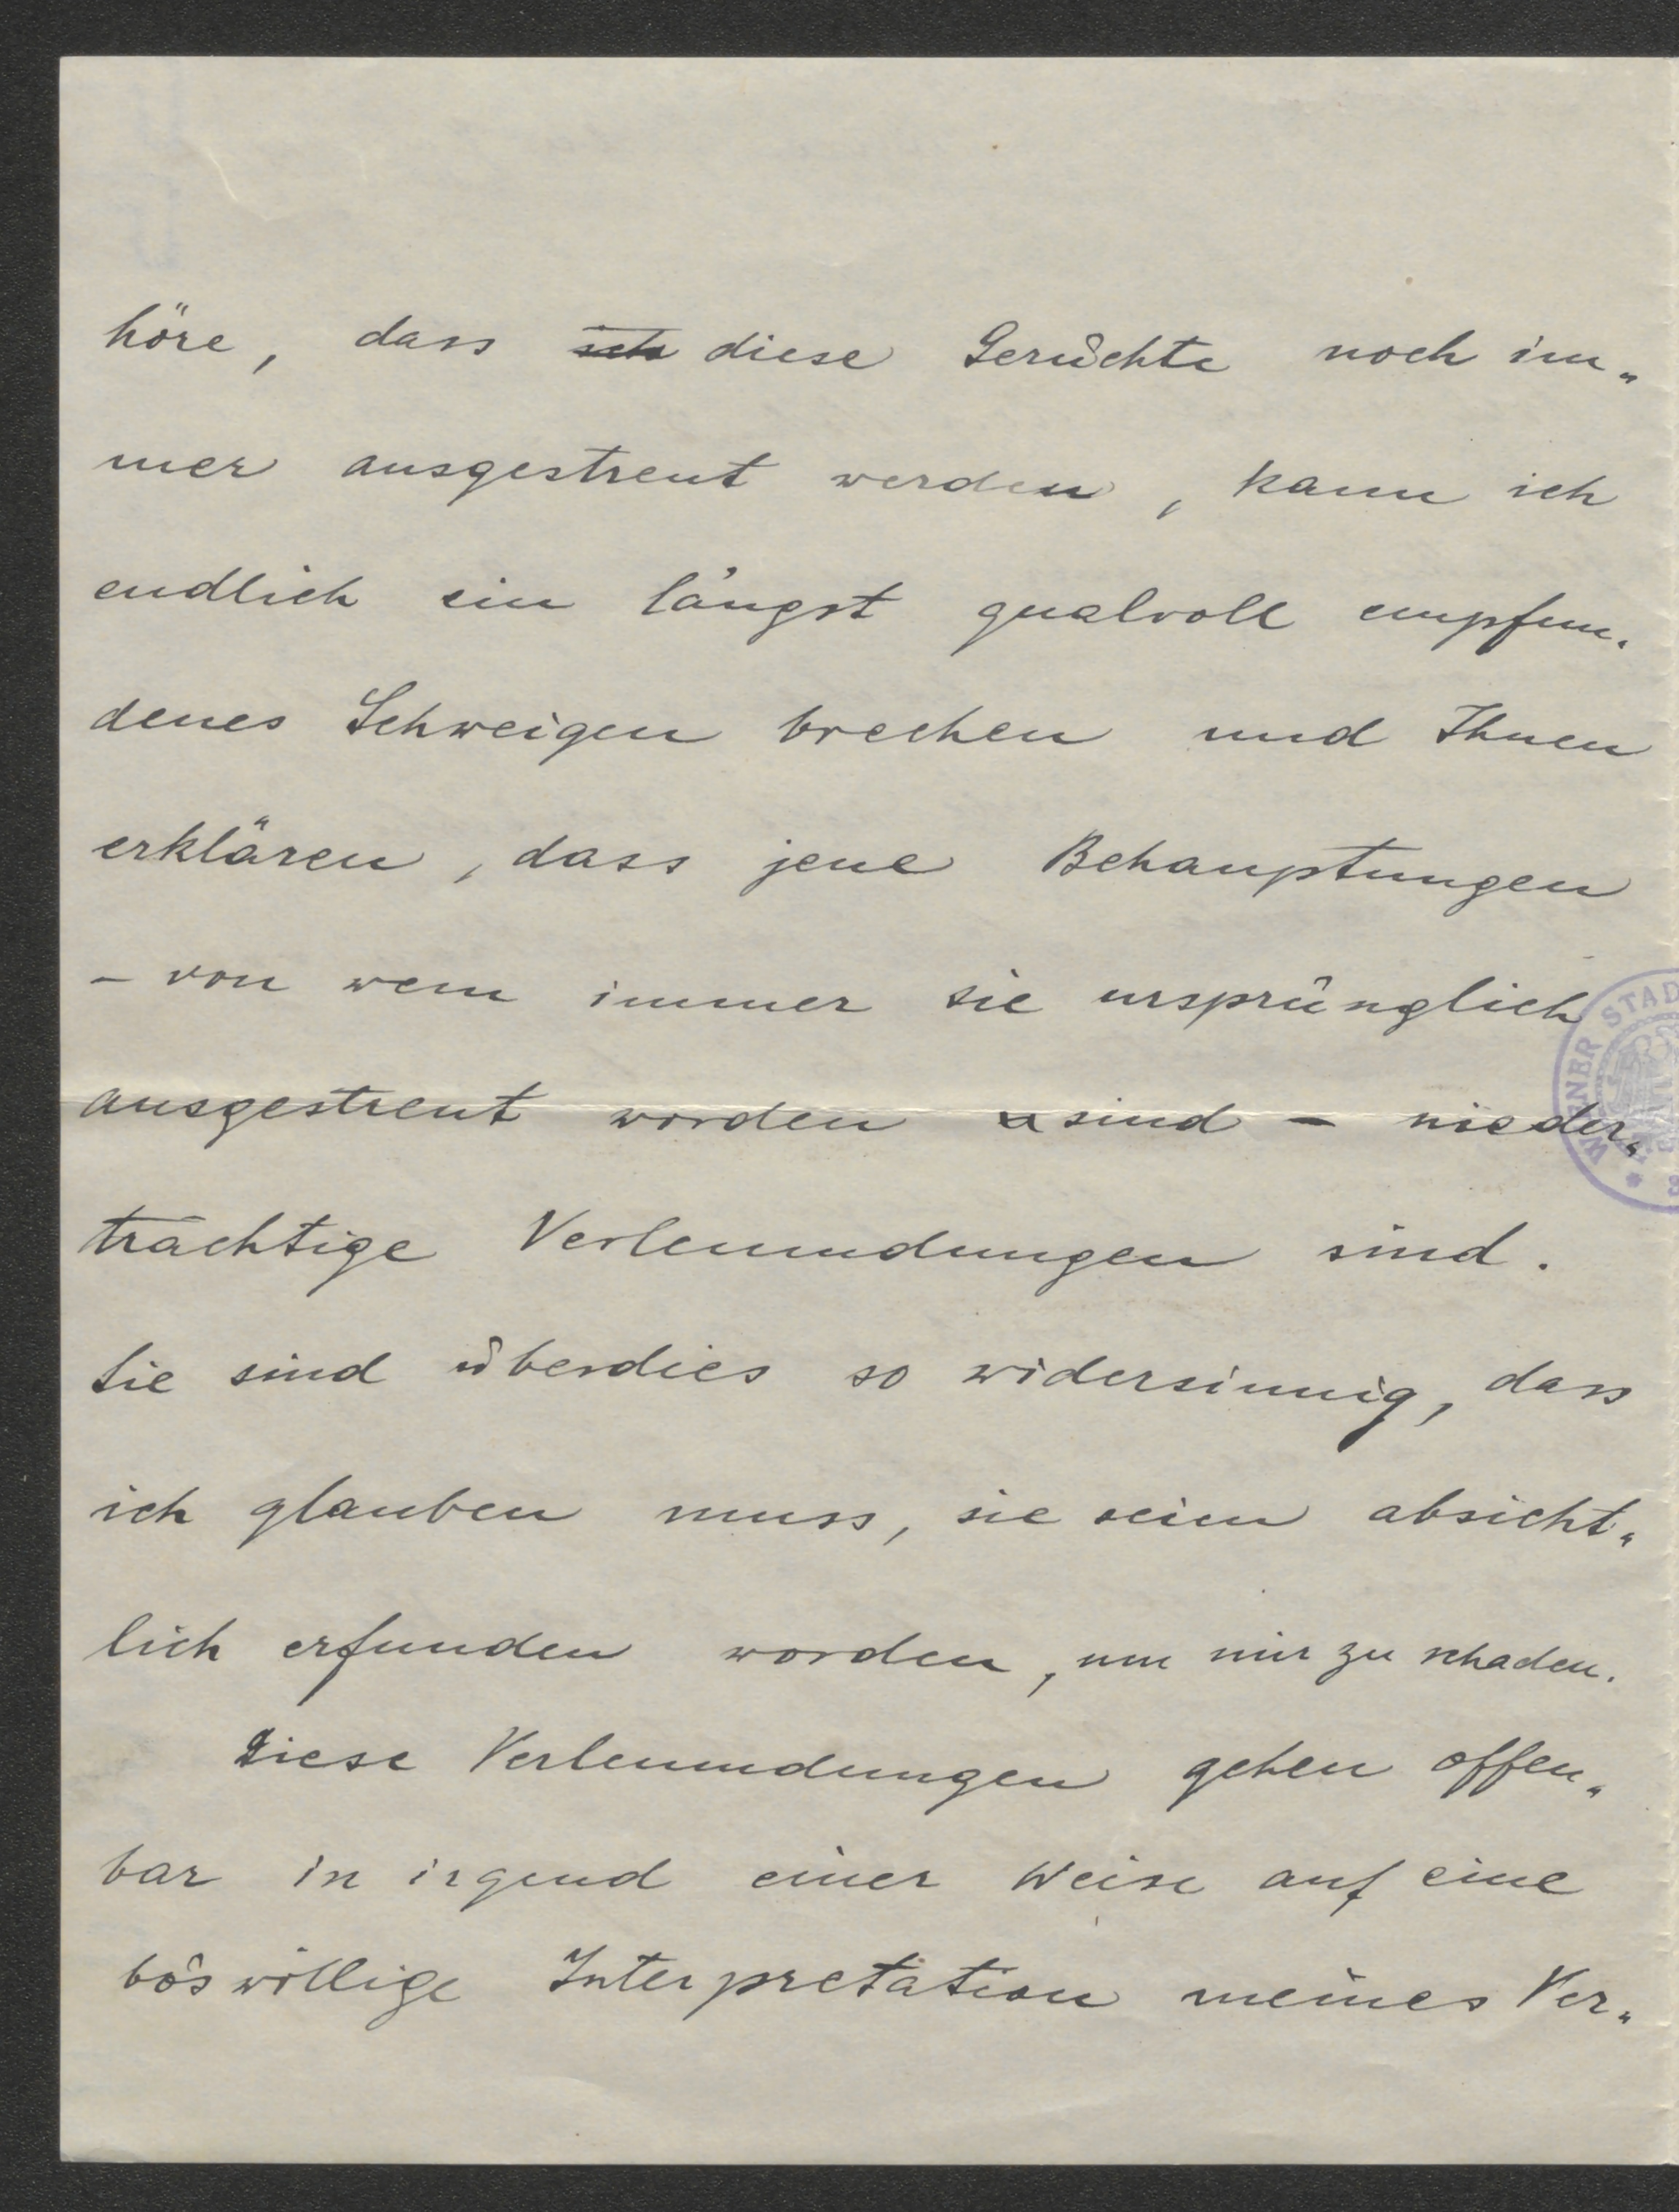 höre, dass ich diese Gerüchte noch im„
mer ausgestreut werden, kann ich
endlich ein längst qualvoll empfun„
denes Schweigen brechen und Ihnen
erklären, dass jene Behauptungen
– von wem immer sie ursprünglich
ausgestreut worden sind – nieder„
trächtige Verleumdungen sind.
Sie sind überdies so widersinnig, dass
ich glauben muss, sie seien absicht„
lich erfunden worden, um mir zu schaden.
Diese Verleumdungen gehen offen„
bar in irgend einer Weise auf eine
böswillige Interpretation meines Ver„
WIENER STAD